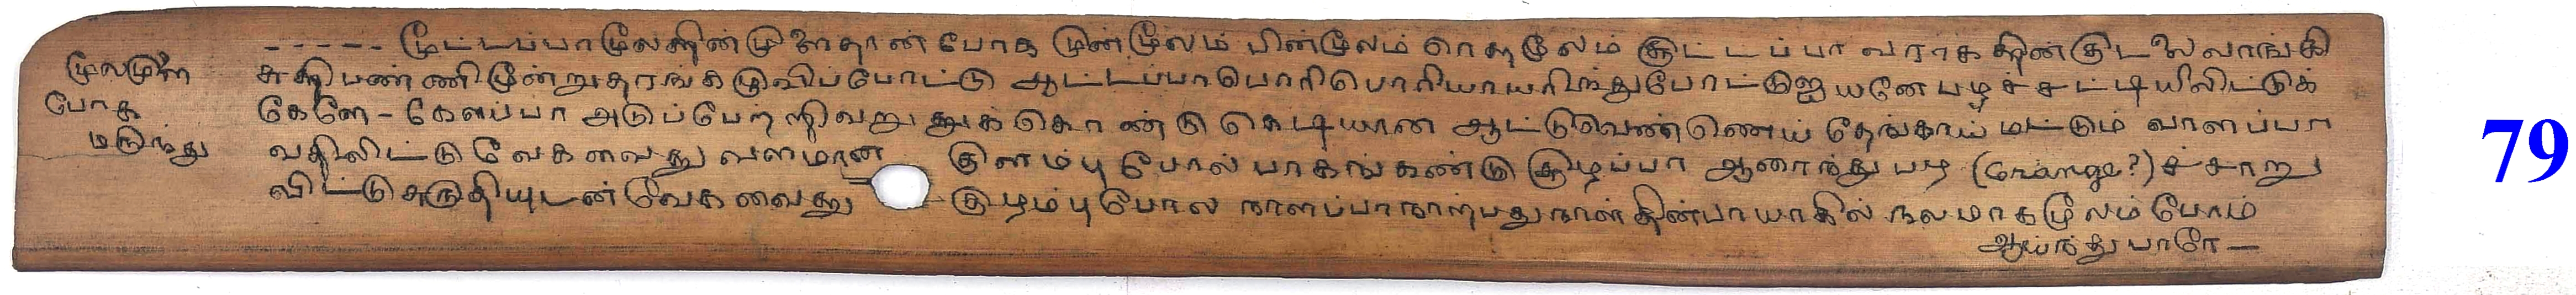 மூலமுளை
போக
மருந்து
----- மூட்டப்பா மூலத்தின் முளைதான் போக முன்மூலம் பின்மூலம் சூட்டப்பா வராகத்தின் குடலை வாங்கி
சுத்திபண்ணி மூன்றுதரங் கழுவிப்போட்டு ஆட்டப்பா பொரிபொரியா யரிந்துபோட்டு ஐயனே பழச்சட்டியிலிட்டுக்
கேளே - கேளப்பா அடுப்பேற்றி வறுத்துக் கொண்டு கெடியான ஆட்டுவெண்ணெய் தேங்காய் மட்டும் வாளப்பா
வதிலிட்டு வேகவைது வளமான குளம்பு போல் பாகங்கண்டு சூழப்பா ஆரைந்து பழ (Orange?) ச்சாறு
விட்டு சுருதியுடன் வேகவைது குழம்புபோல நாளப்பா நாற்பதுநாள் தின்பாயாகில் நலமாக மூலம் போம்
ஆய்ந்து பாரே -
79